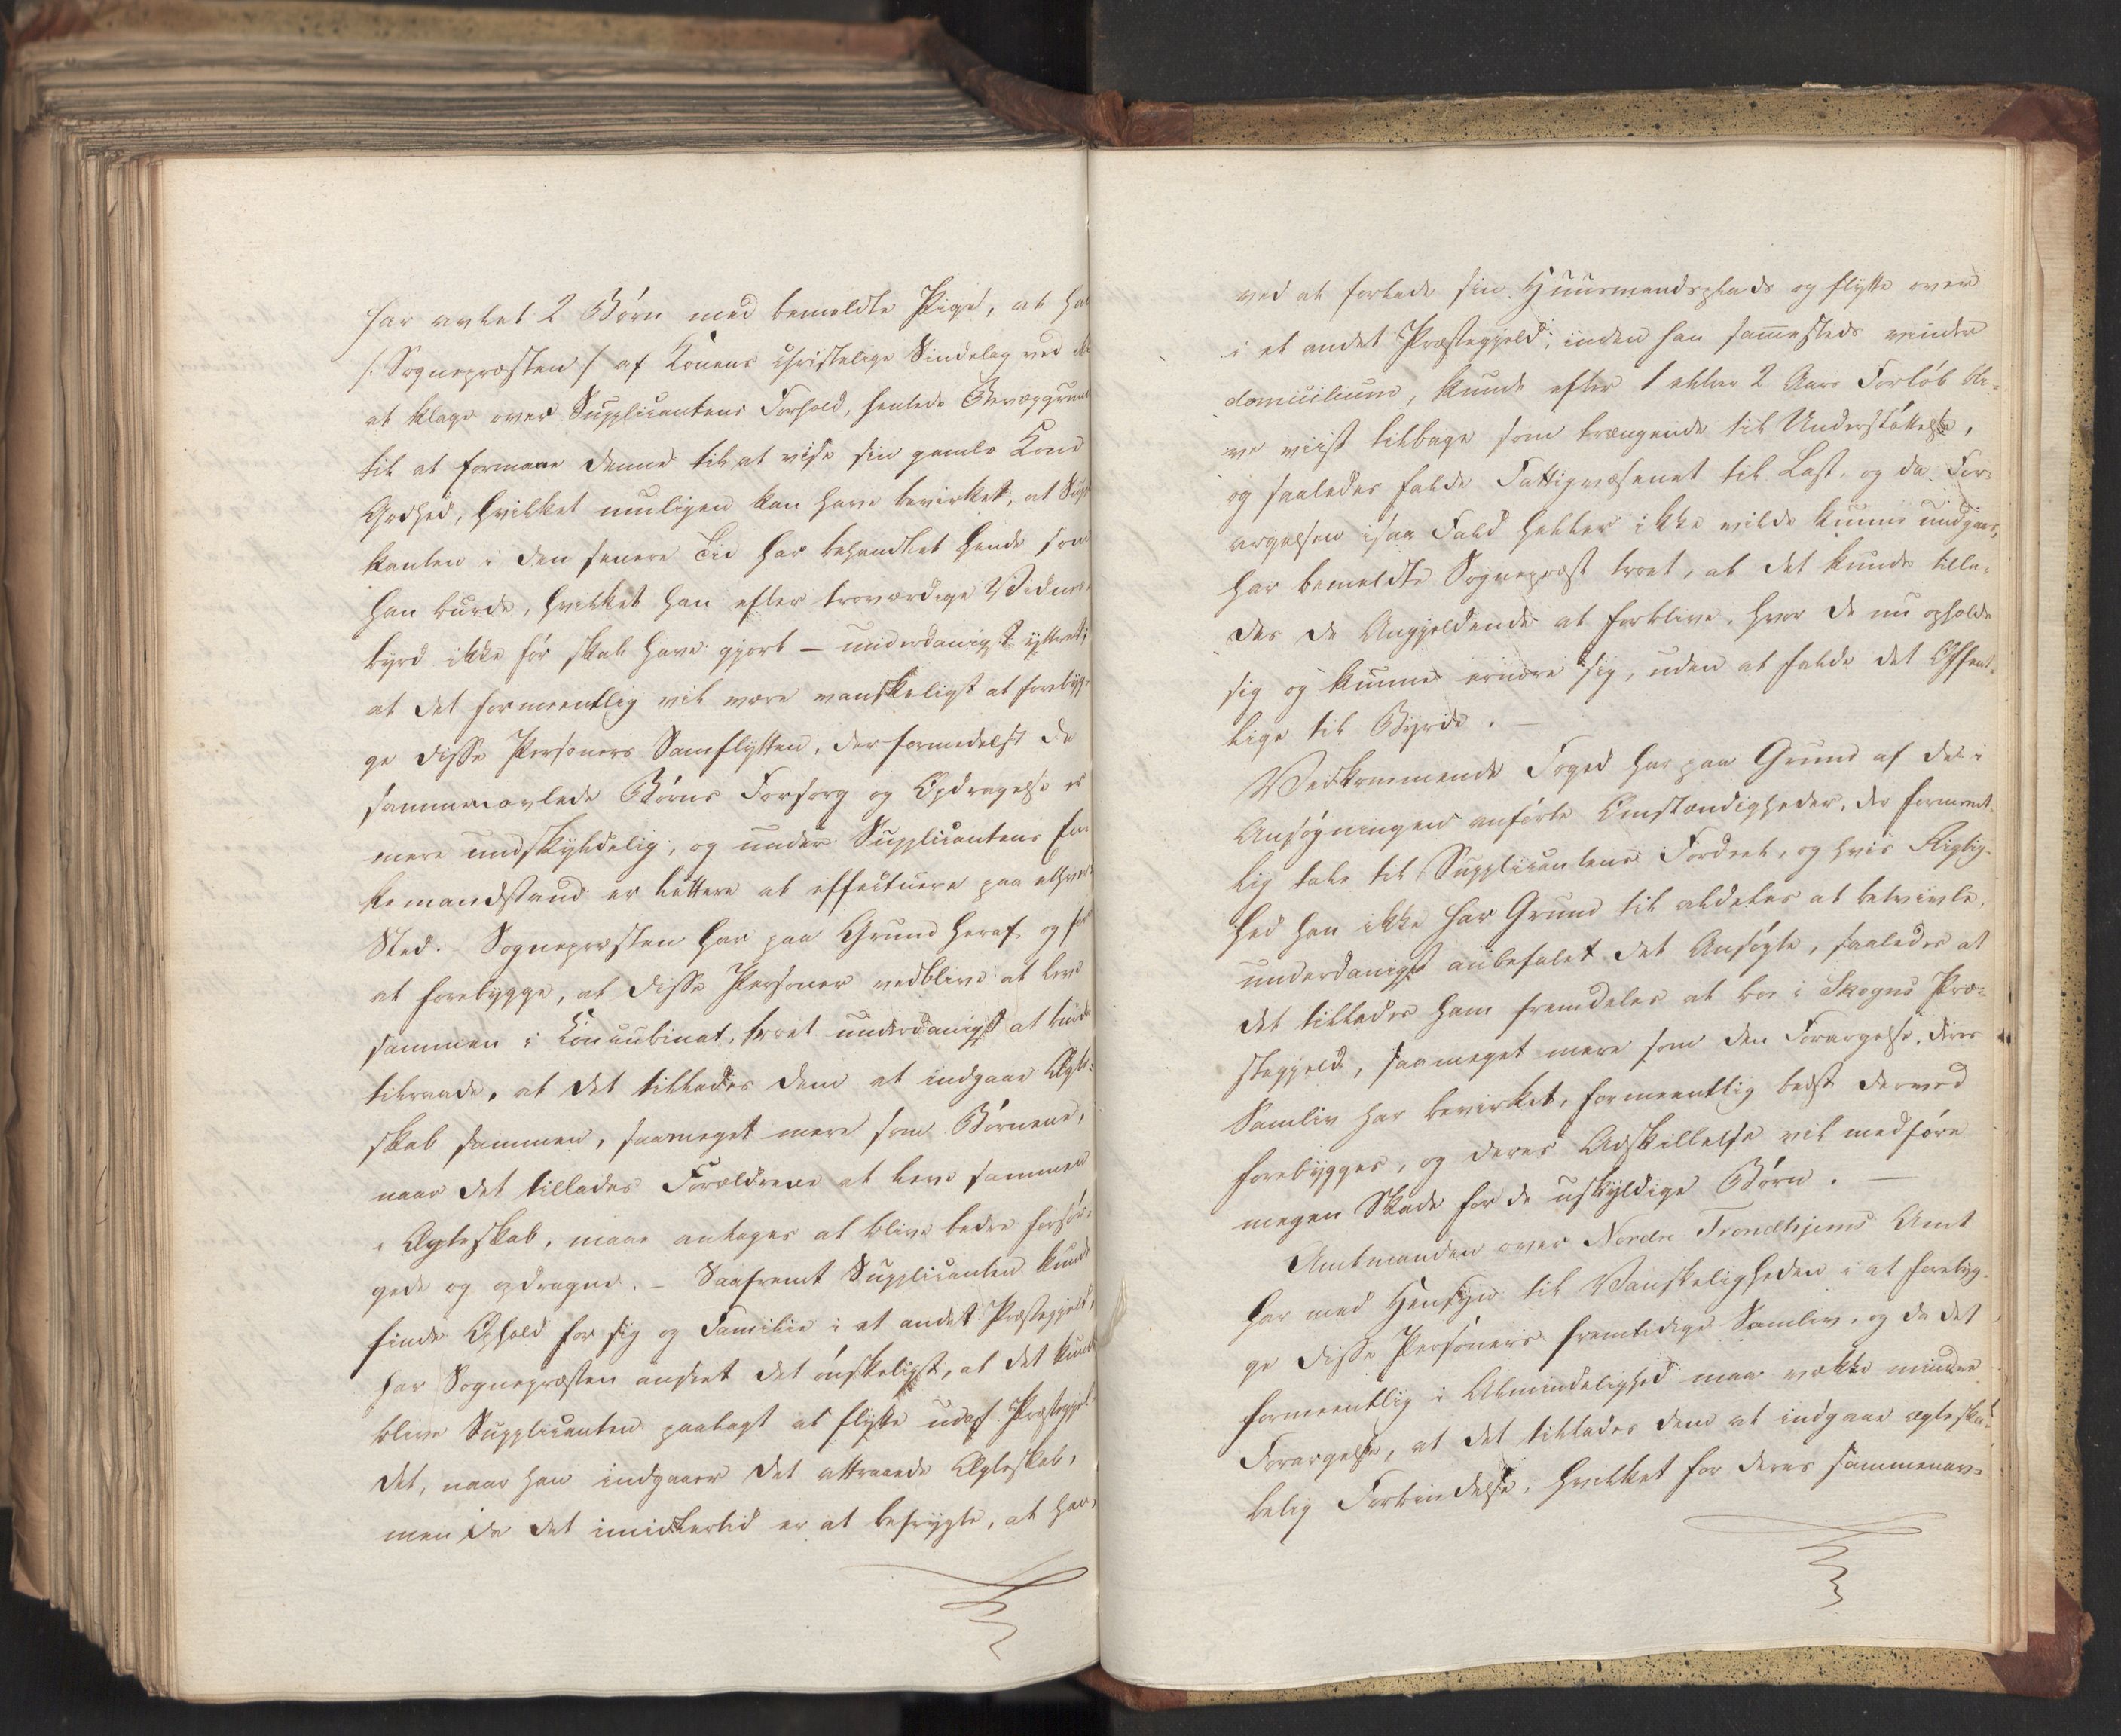 har avlet 2 Børn med bemeldte Pige, at han
/: Sognepræsten :/ af Konens christelige Sindelag ved ei
at klage over Supplicantens Forhold, hentede Bevæggrund
til at formaae denne til at vise sin gamle Kone
Godhed, hvilket muligen kan have bevirket, at Suppli-
kanten i den senere Tid har behandlet hende som
han burde, hvilket han efter troværdige Vidnes-
byrd ikke før skal have gjort – underdanigst yttret,
at det formeentlig vil være vanskeligst at forebyg-
ge disse Personers Samflytten, der formedelst de
sammenavlede Børns Forsorg og Opdragelse er
mere undskyldelig, og under Supplicantens En-
kemandsstand er lettere at effectuere paa ethvert
Sted. Sognepræsten har paa Grund heraf og for
at forebygge, at disse Personer vedblive at leve
sammen i Concubinat, troet underdanigst at burde
tilraade, at det tillades dem at indgaae Ægte-
skab sammen, saameget mere som Børnene,
naar det tillades Forældrene at leve sammen
i Ægteskab, maae antages at blive bedre forsør-
gede og opdragne. – Saafremt Supplicanten kunde
finde Ophold for sig og Familie i et andet Præstegjeld,
har Sognepræsten anseet det ønskeligst, at det kunde
blive Supplicanten paalagt at flytte ud af Præstegjel-
det, naar han indgaaer det attraaede Ægteskab,
men da det imidlertid er at befrygte, at han,
ved at forlade sin Huusmandsplads og flytte over
i et andet Præstegjeld, inden han sammesteds vinder
domicilium, kunde efter 1 eller 2 Aars Forløb bli-
ve viist tilbage som trængende til Understøttelse,
og saaledes falde Fattigvæsenet til Last, og da For-
argelsen isaa Fald heller ikke vilde kunne undgaaes,
har bemeldte Sognepræst troet, at det kunde tilla-
des de Angjeldende at forblive, hvor de nu opholde
sig og kunne ernære sig, uden at falde det Offent-
lige til Byrde. –
Vedkommende Foged har paa Grund af de i
Ansøgningen anførte Omstændigheder, der formeent-
lig tale til Supplicantens Fordeel, og hvis Rigtig-
hed han ikke har Grund til aldeles at betvivle,
underdanigst anbefalet det Ansøgte, saaledes at
det tillades ham fremdeles at boe i Skogns Præ-
stegjeld, saameget mere som den Forargelse, deres
Samliv har bevirket, formeentlig bedst derved
forebygges, og deres Adskillelse vil medføre
megen Skade for de uskyldige Børn. –
Amtmanden over Nordre Trondhjems Amt
har med Hensyn til Vanskeligheden i at forebyg-
ge disse Personers fremtidige Samliv, og da det
formeentlig i Almindelighed maa vække mindre
Forargelse, at det tillades dem at indgaae ægteska-
belig Forbindelse, hvilket for deres sammenav-